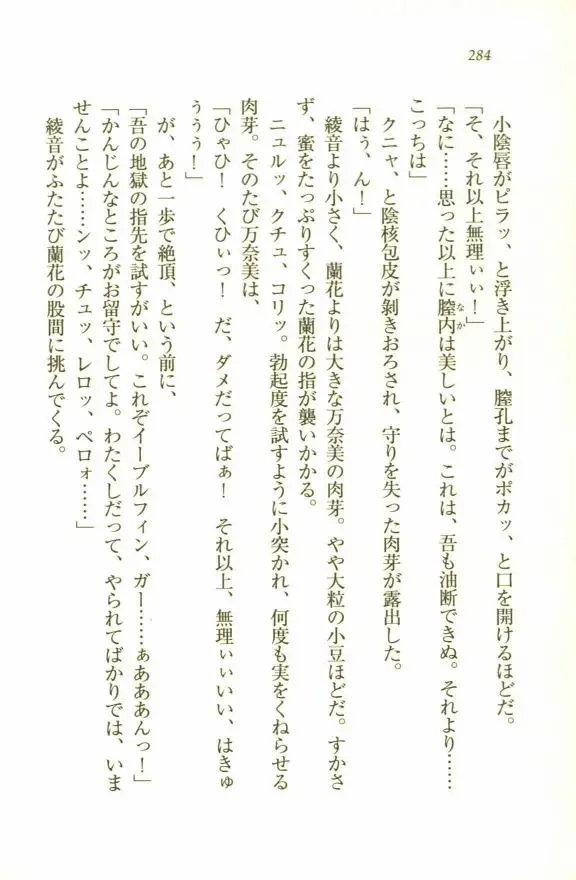 284
小陰唇がピラッ、と浮き上がり、膣孔までがポカッ、と口を開けるほどだ。
「そ、それ以上無理ぃぃ！」
「なに……思った以上に膣内なかは美しいとは。これは、吾も油断できぬ。それより……
こっちは」
クニャ、と陰核包皮が剝きおろされ、守りを失った肉芽が露出した。
「はぅ、ん！」
綾音より小さく、蘭花よりは大きな万奈美の肉芽。やや大粒の小豆ほどだ。すかさ
ず、蜜をたっぷりすくった蘭花の指が襲いかかる。
ニュルッ、クチュ、コリッ。勃起度を試すように小突かれ、何度も実をくねらせる
肉芽。そのたび万奈美は、
「ひゃひ！　くひぃっ！　だ、ダメだってばぁ！　それ以上、無理ぃぃいい、はきゅ
ぅぅう！」
が、あと一歩で絶頂、という前に、
「吾の地獄の指先を試すがいい。これぞイーブルフィン、ガー……ぁあああんっ！」
「かんじんなところがお留守でしてよ。わたくしだって、やられてばかりでは、いま
せんことよ……ンッ、チュッ、レロッ、ペロォ……」
綾音がふたたび蘭花の股間に挑んでくる。